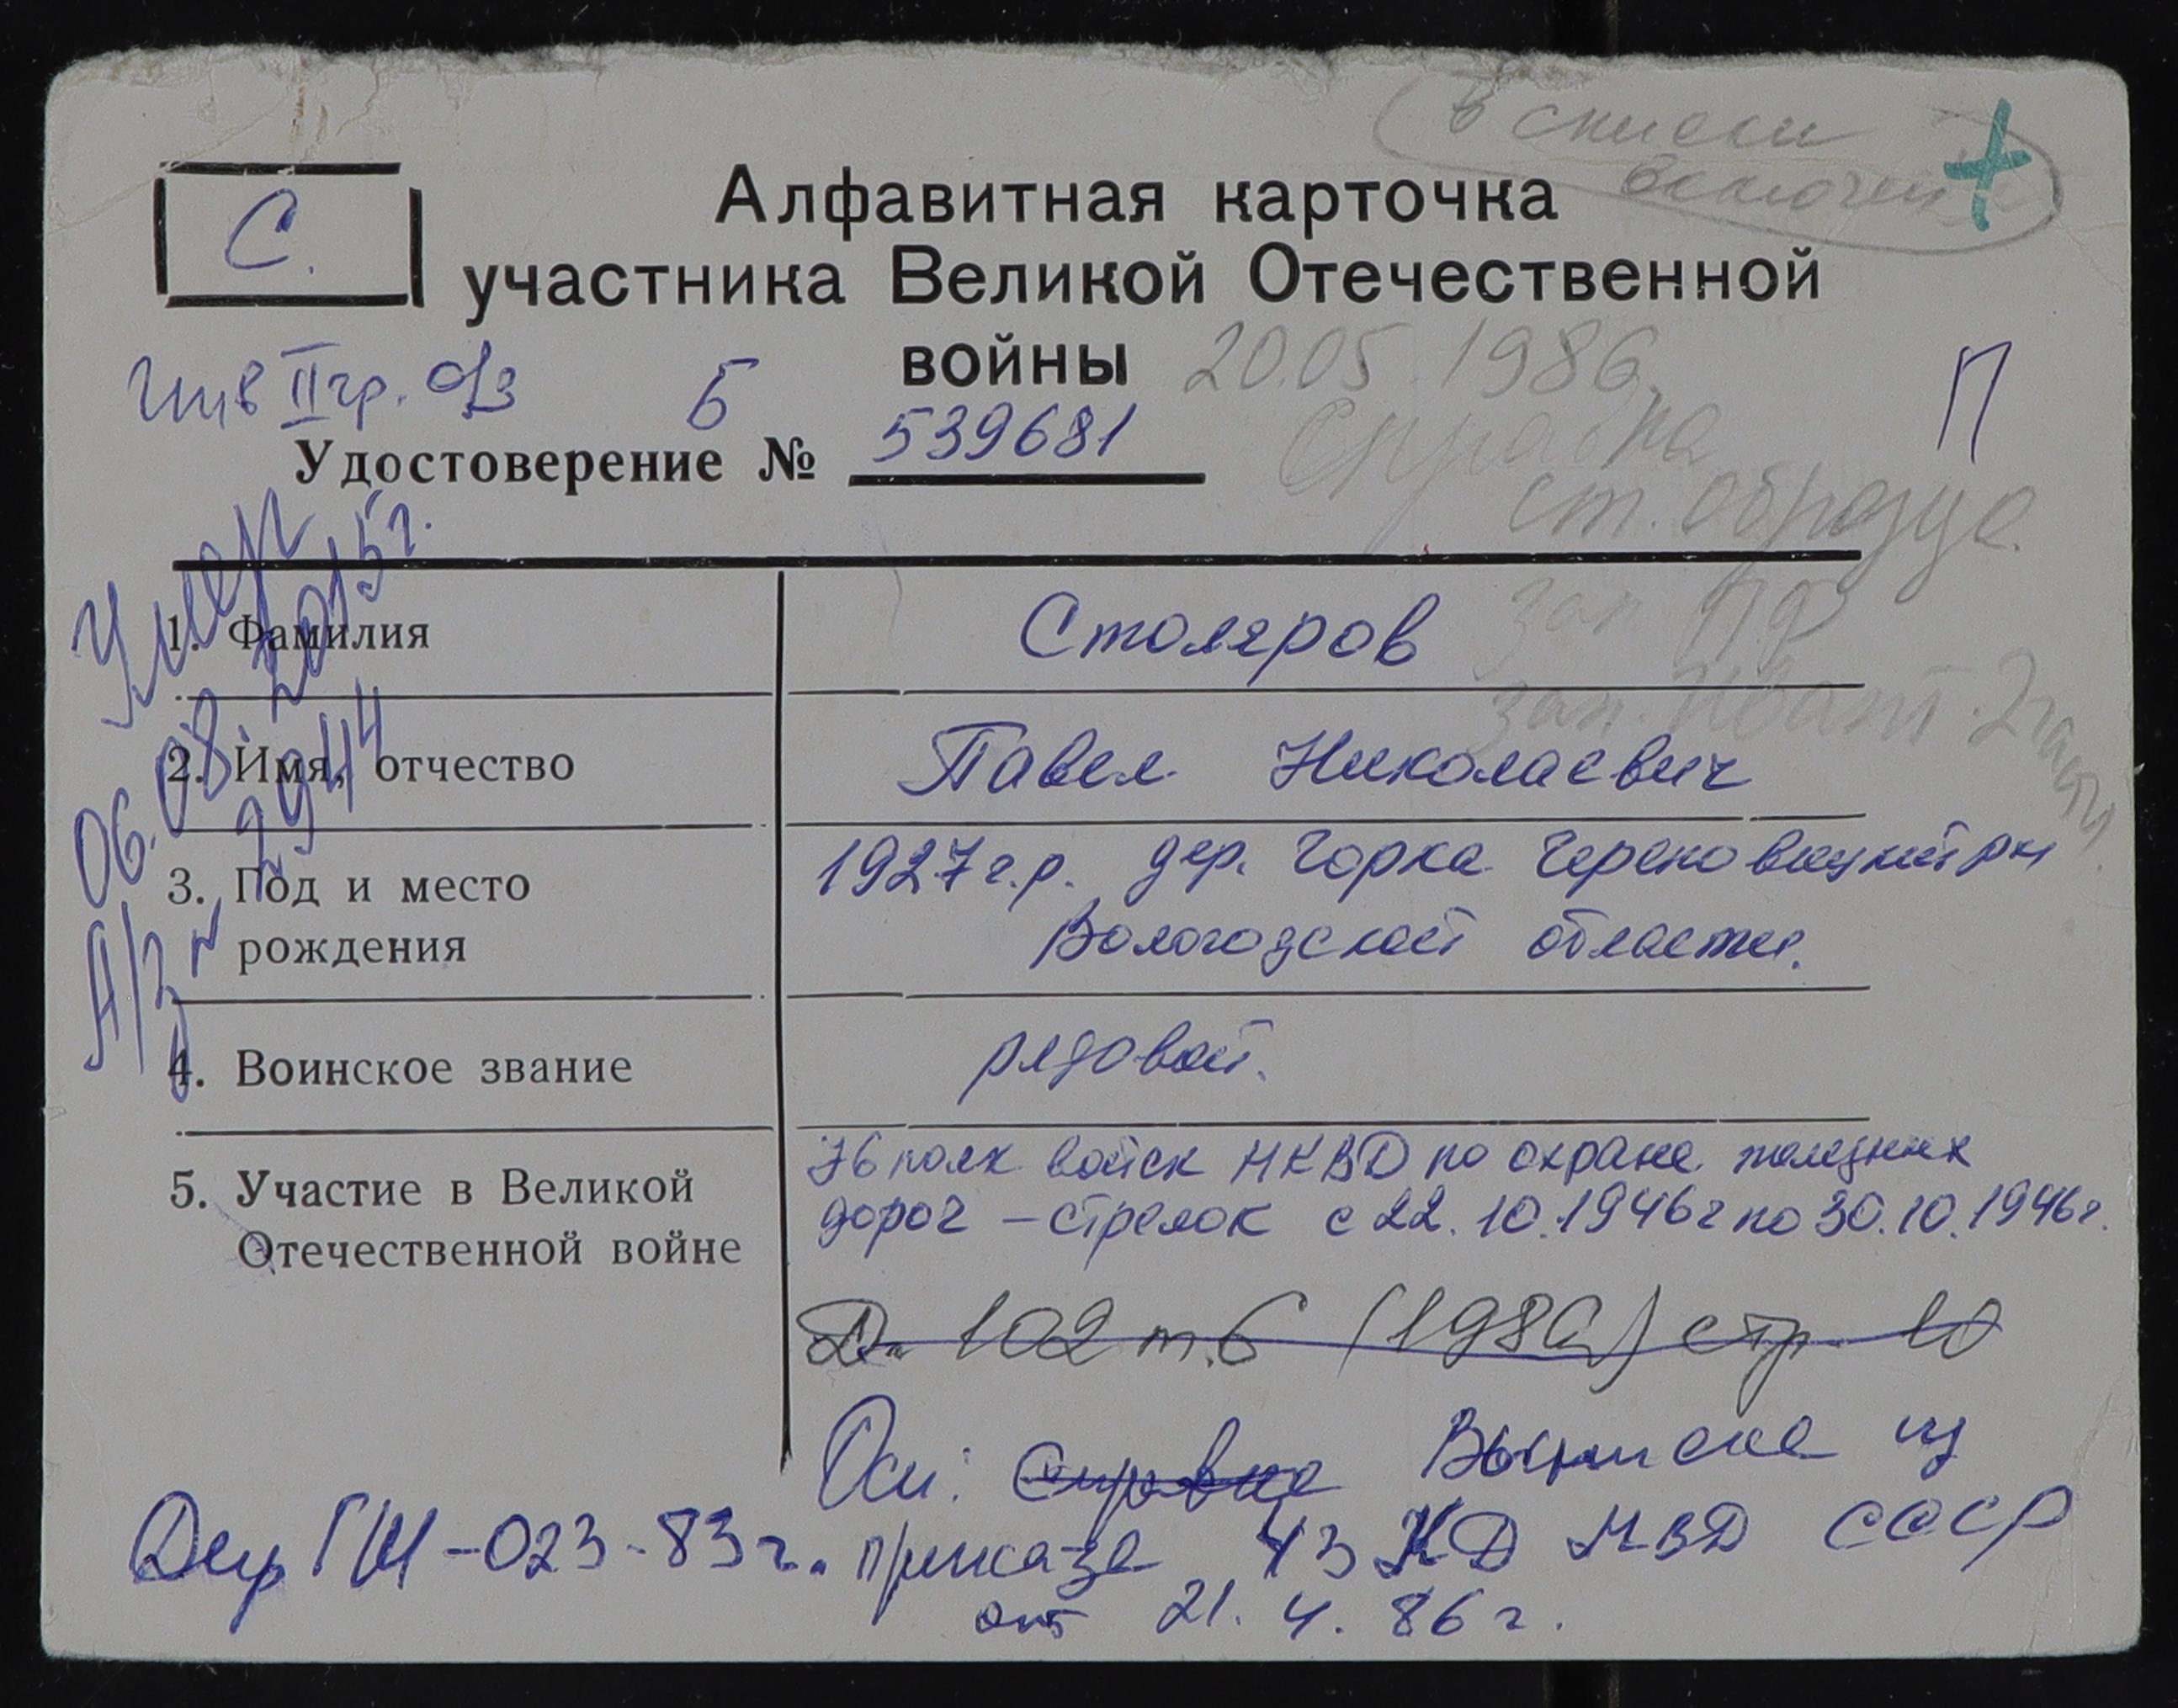 в списки
включен
С.
Алфавитная карточка
участника Великой Отечественной
войны
20.05.1986
П
Инв II гр. о/з
Б
Удостоверение № 539681
Справка
ст. образца.
Умер
06.08.2015г.
А/з № 2944
1. Фамилия
Столяров
зап.
2. Имя, отчество
Павел Николаевич
зап.
3. Год и место
рождения
1927г.р. дер. Горка Череповецкий рн
Вологодской области.
4. Воинское звание
рядовой.
5. Участие в Великой
Отечественной войне
76 полк войск НКВД по охране железных
дорог – стрелок с 22.10.1946г по 30.10.1946г.
Д. 102 т.6 (1986) стр. 10
Осн: Справка Выписка из
Дир ГШ-023-83г. приказа 43 КД МВД СССР
от 21.4.86г.